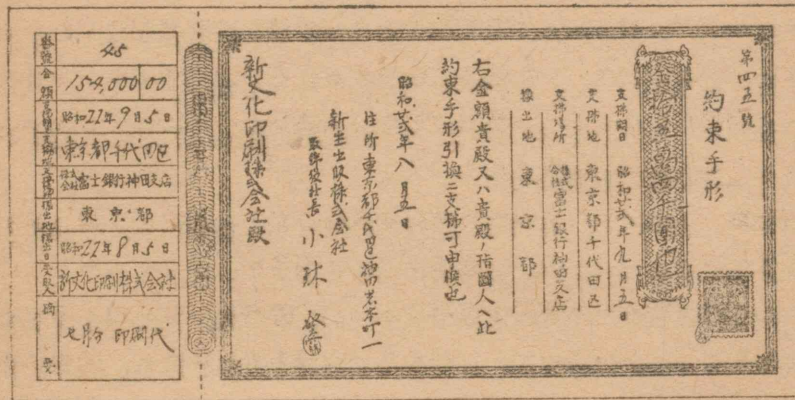 第四五號
約束手形
金拾五萬四千圓也
支拂期日 昭和廿貳年九月五日
支拂地 東京都千代田区
支拂場所 株式会社富士銀行神田支店
振出地 東京都
右金額貴殿又ハ貴殿ノ指圖人ヘ此
約束手形引換ニ支拂可申候也
昭和廿貳年八月五日
住所東京都千代田区神田
新生出版株式会社
取締役社長 小林
新文化印刷株式会社殿
番號 45
金額 154,000 00
昭和22年9月5日
東京都千代田区
株式会社富士銀行神田支店
東京都
昭和22年8月5日
受取人 新文化印刷株式会社
摘要 七月分 印刷代